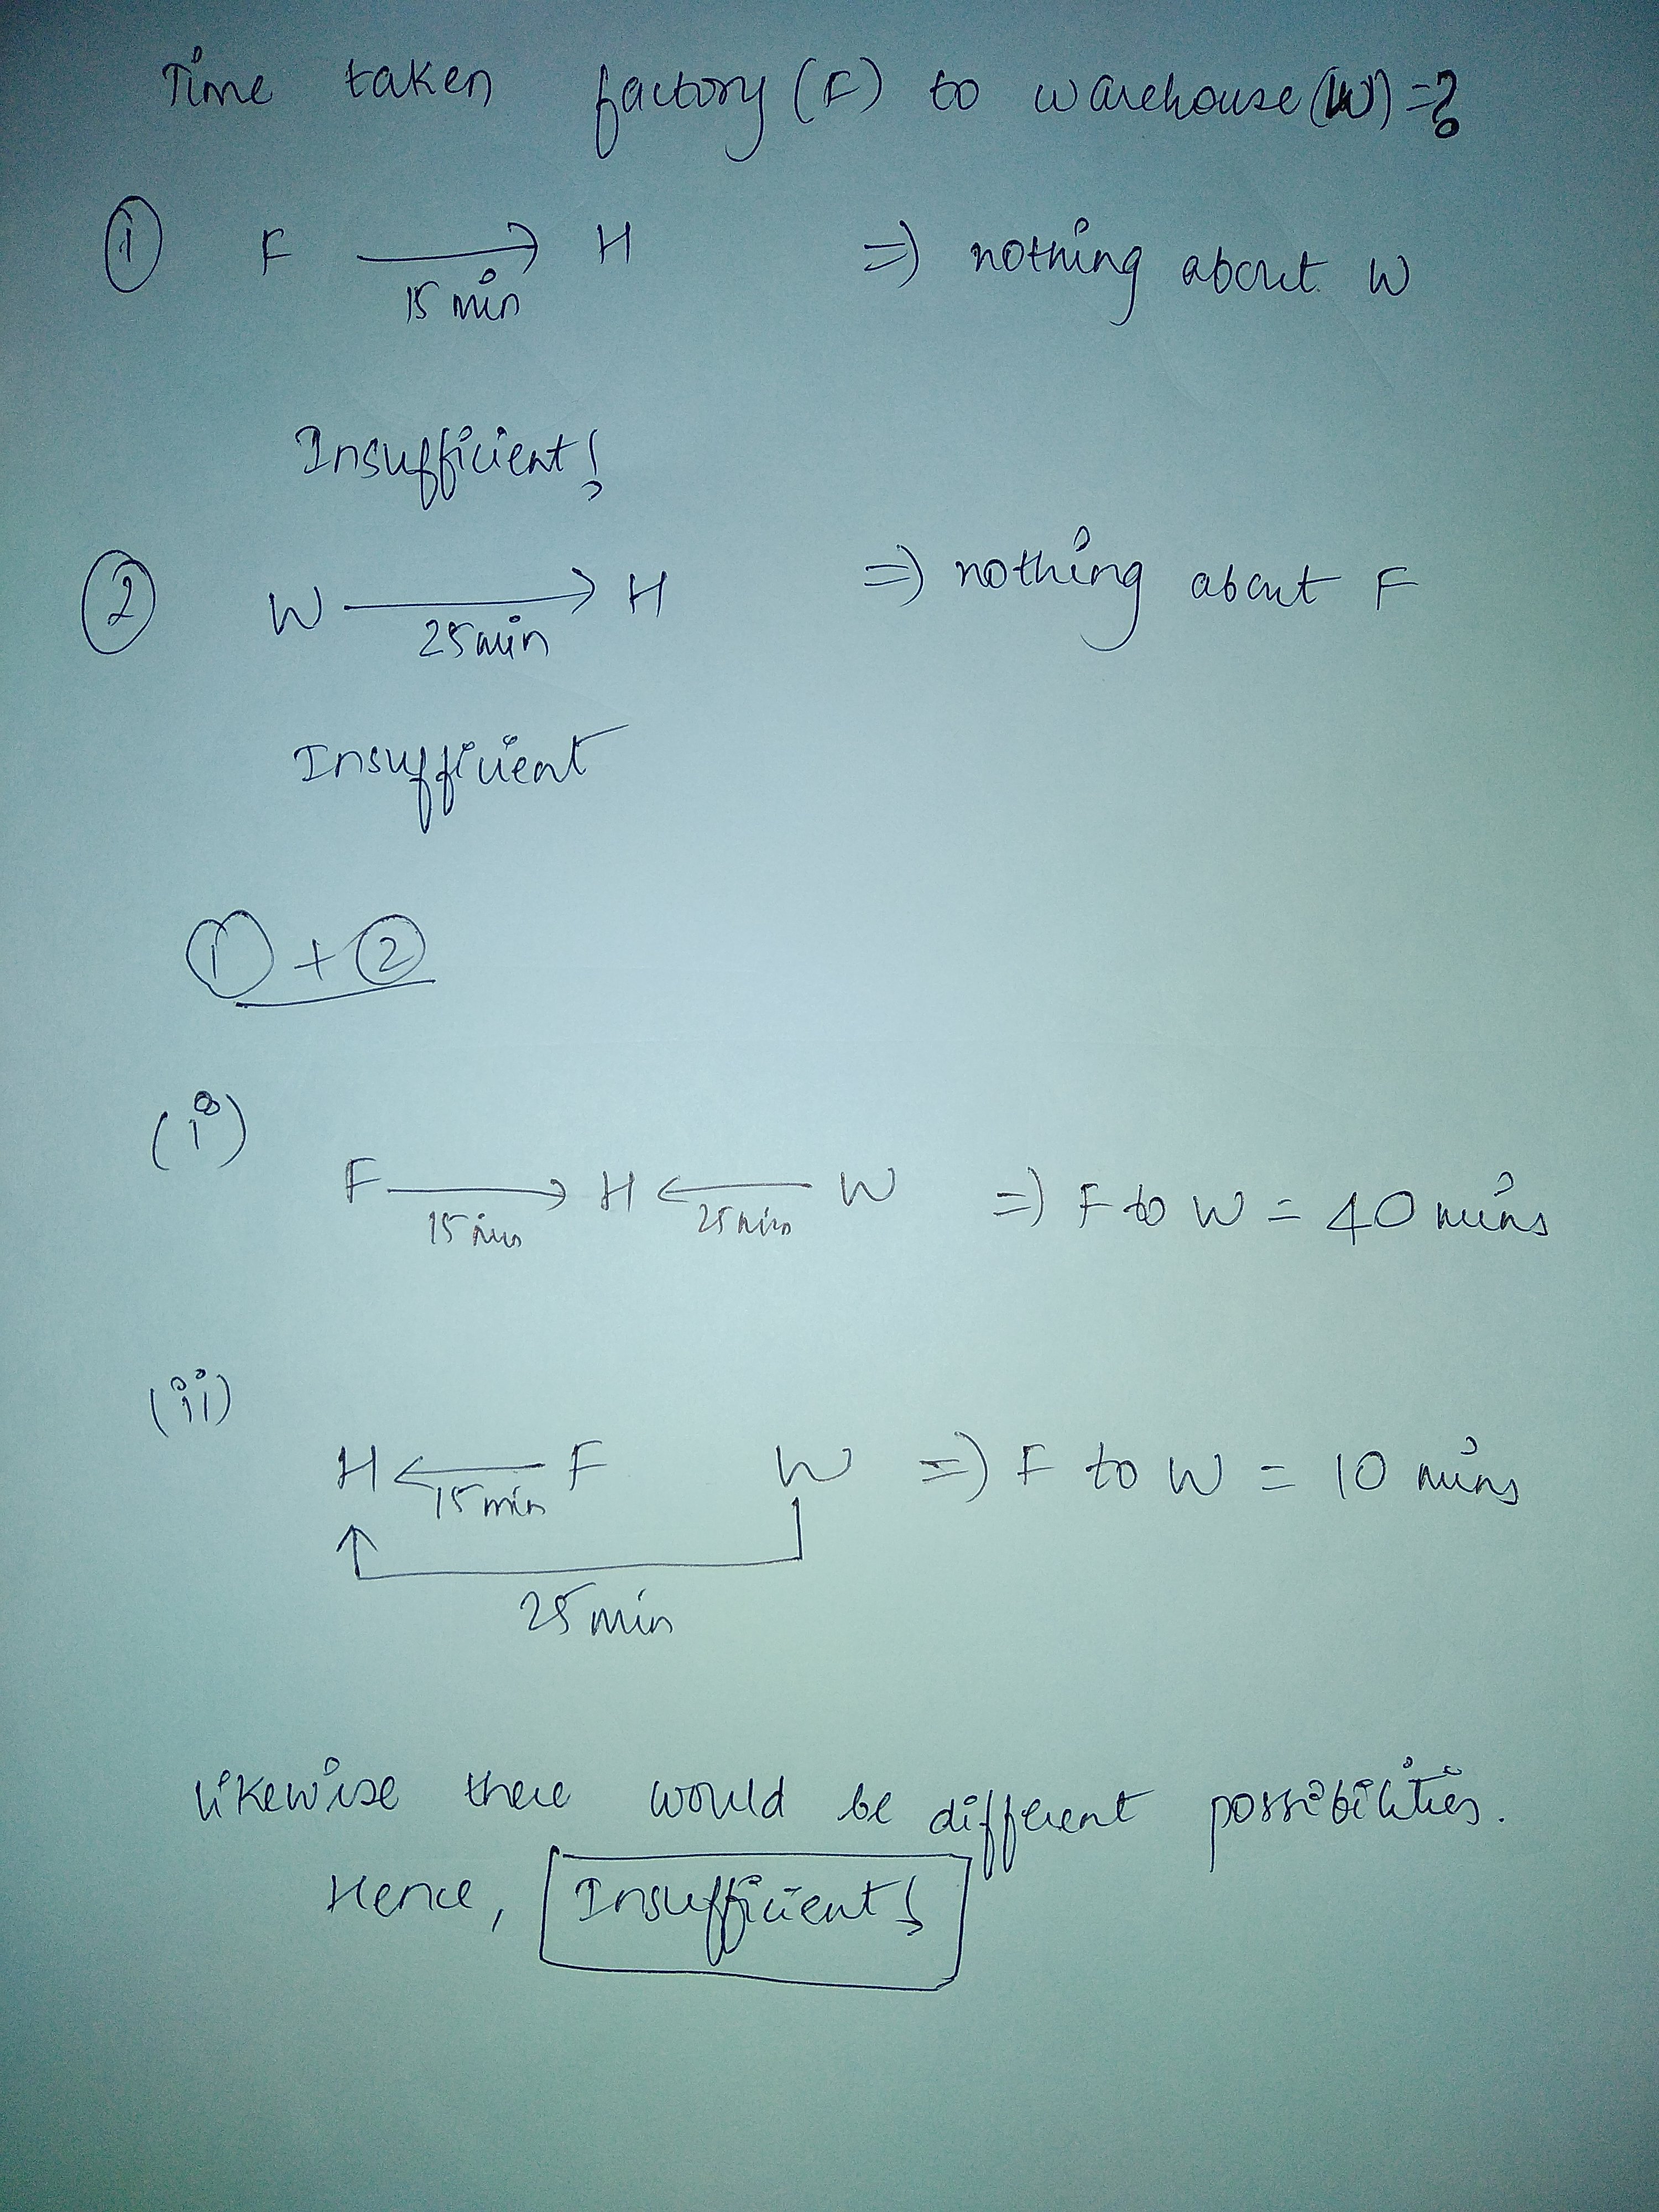 Time taken factory (F) to warehouse (W) = ?
① F → H ⇒ nothing about W
15 min
Insufficient!
② W → H ⇒ nothing about F
25 min
Insufficient
① + ②
(i)
F → H ← W ⇒ F to W = 40 mins
15 min 25 min
(ii)
H ← F W ⇒ F to W = 10 mins
15 min
25 min
likewise there would be different possibilities.
Hence, Insufficient!